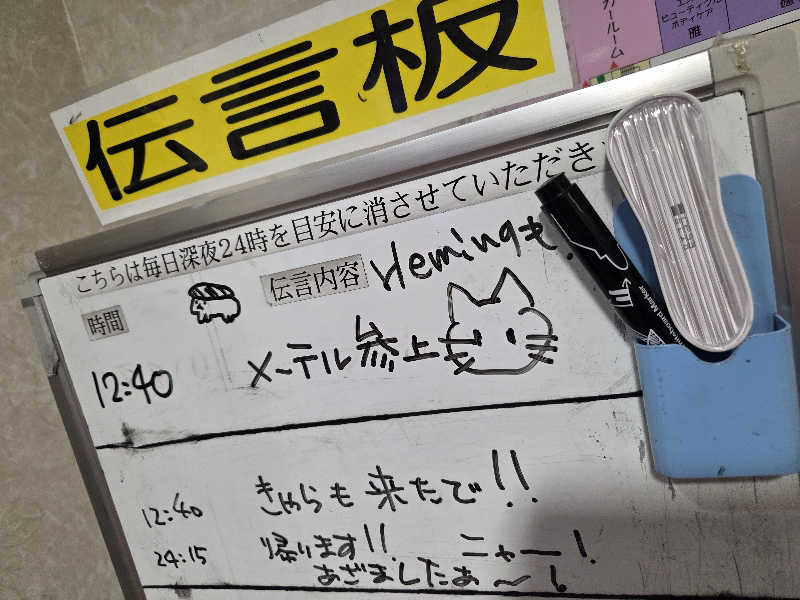 伝言板
こちらは毎日深夜24時を目安に消させていただき
時間
伝言内容
Hemingも
12:40
メーテル参上
12:40 きゃらも来たで!!
24:15 帰ります!! ニャー!
あざましたぁ〜!
カールーム
ビューティフル
ボディケア
雁
Whiteboard Marker